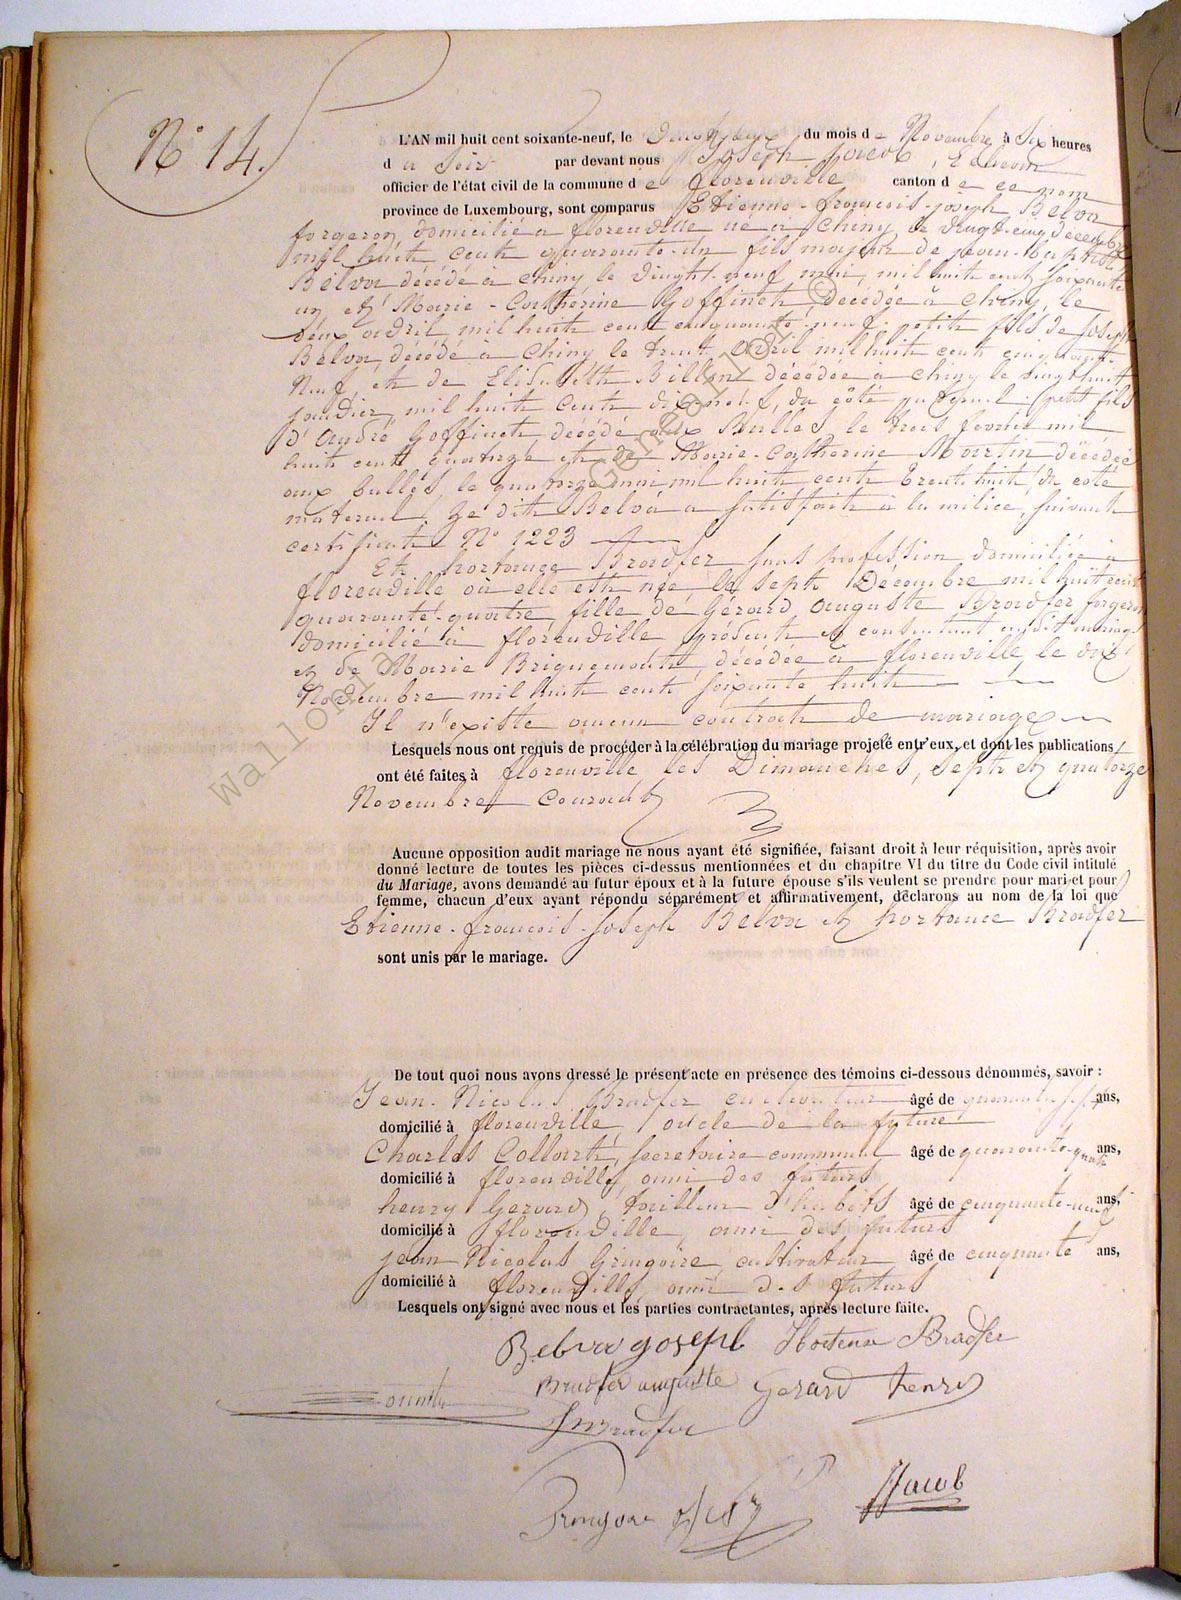 N° 14.
L'AN mil huit cent soixante-neuf, le du mois de Novembre à Six heures
du Soir par devant nous Joseph Jacob, Echevin
officier de l'état civil de la commune de florenville canton de ce nom
province de Luxembourg, sont comparus Etienne-françois-joseph Belva
forgeron domicilié à florenville né à Chiny le vingt-cinq décembre
mil huit cent quarante-un fils majeur de jean-baptiste
Belva décédé à chiny le vingt-neuf mai, mil huit cent soixante
un et Marie-Cathérine Goffinet, décédée à Chiny, le
deux avril mil huit cent cinquante-neuf. petit fils de Joseph
Belva, décédé à Chiny le trent avril mil huit cent cinquante
Neuf, et de Elisabeth Billon décédée à Chiny le vingt huit
janvier, mil huit cent dix neuf, du côté paternel. petit fils
d'André Goffinet décédé aux Bulles, le trois février mil
huit cent quatorze et de Marie-Catherine Martin décédée
aux bulles, le quatorze mai mil huit cent trent huit, du coté
maternel. Le dit Belva a satisfait à la milice, suivant
certificat N° 1223
Et hortance Bradfer sans profession domiciliée à
florenville où elle est née, le sept Décembre mil huit cent
quarante-quatre, fille de Gérard Auguste Bradfer forgeron
domicilié à florenville présent et consentant audit mariage
et de Marie Briquemont, décédée à florenville le dix
Novembre mil huit cent soixante huit
Il n'existe aucun contrat de mariage
Lesquels nous ont requis de procéder à la célébration du mariage projeté entr'eux, et dont les publications
ont été faites à florenville les Dimanches, sept et quatorze
Novembre Courant
Aucune opposition audit mariage ne nous ayant été signifiée, faisant droit à leur réquisition, après avoir
donné lecture de toutes les pièces ci-dessus mentionnées et du chapitre VI du titre du Code civil intitulé
du Mariage, avons demandé au futur époux et à la future épouse s'ils veulent se prendre pour mari et pour
femme, chacun d'eux ayant répondu séparément et affirmativement, déclarons au nom de la loi que
Etienne-françois-Joseph Belva et hortance Bradfer
sont unis par le mariage.
De tout quoi nous avons dressé le présent acte en présence des témoins ci-dessous dénommés, savoir :
Jean-Nicolas Bradfer cultivateur âgé de quarante sept ans,
domicilié à florenville, oncle de la future
Charles Collart, secrétaire communal âgé de quarante-quatre ans,
domicilié à florenville, ami des futurs
henry Gerard, tailleur d'habits âgé de cinquante-neuf ans,
domicilié à florenville, ami des futurs
jean Nicolas Gringoire, cultivateur âgé de cinquante ans,
domicilié à florenville, ami des futurs
Lesquels ont signé avec nous et les parties contractantes, après lecture faite.
Belva joseph Hortense Bradfer
Bradfer auguste Gerard henri
JNBradfer
JJacob
wallonia Geneanet.org ©